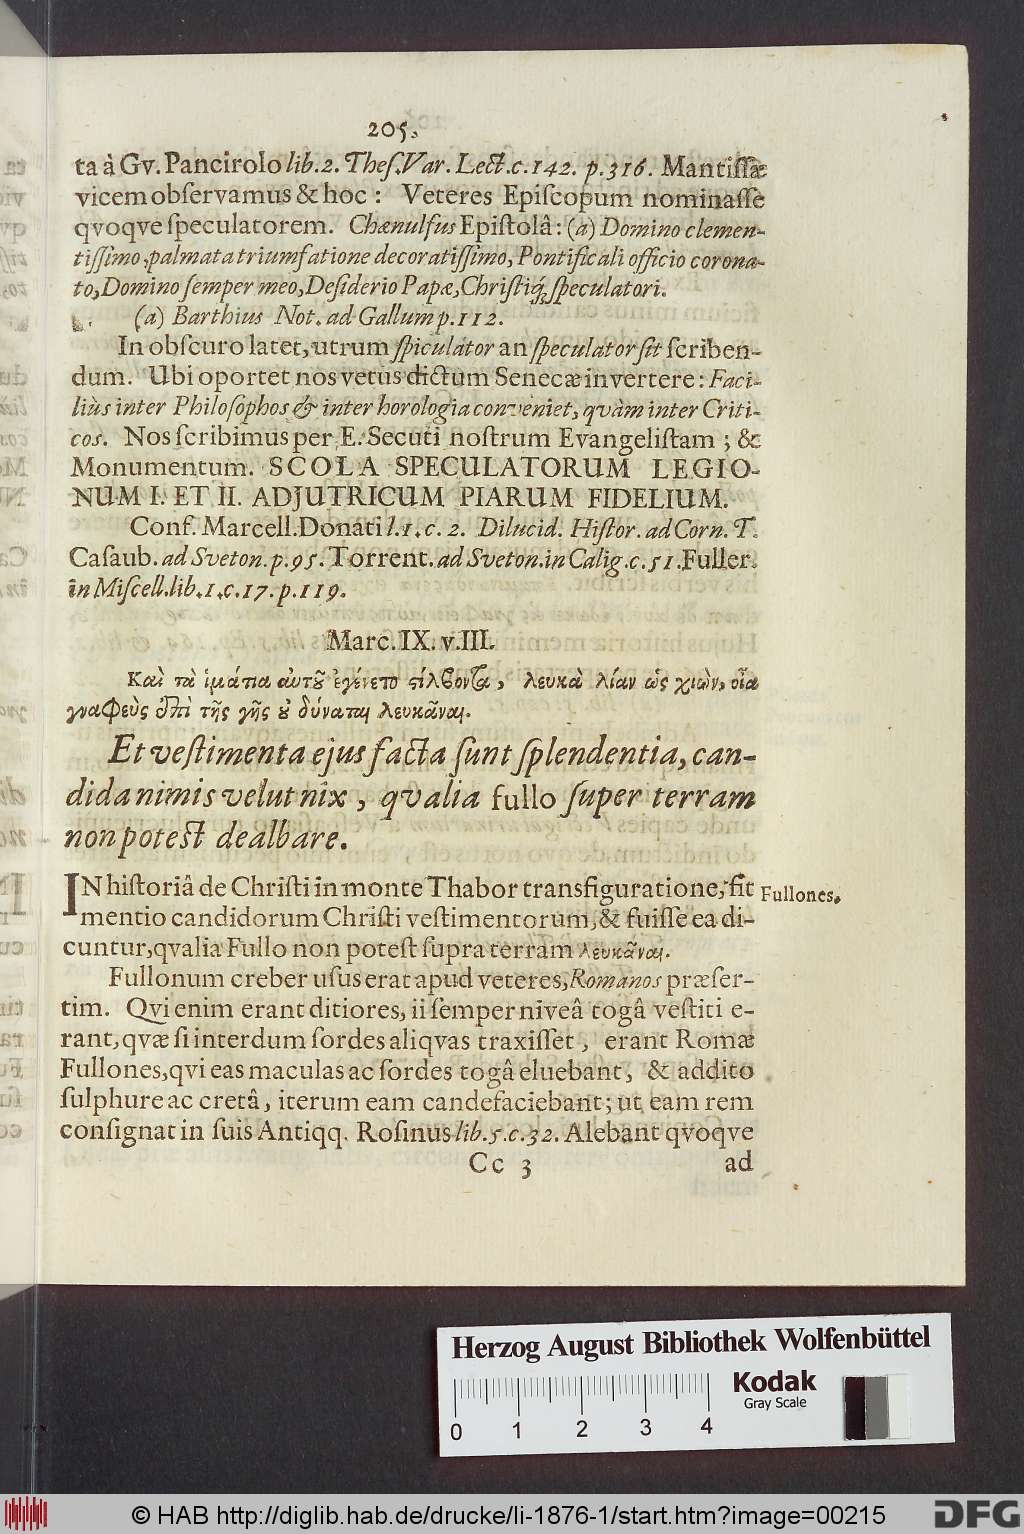 205.
ta à Gv. Pancirolo lib.2. Theſ.Var. Lect.c.142. p.316. Mantiſſæ
vicem obſervamus & hoc: Veteres Epiſcopum nominaſſe
qvoqve ſpeculatorem. Chænulfus Epiſtolâ: (a) Domino clemen-
tiſſimo, palmata triumfatione decoratiſſimo, Pontificali officio corona-
to, Domino ſemper meo, Deſiderio Papæ, Chriſtiq́; ſpeculatori.
(a) Barthius Not. ad Gallum p.112.
In obſcuro latet, utrum ſpiculator an ſpeculator ſit ſcriben-
dum. Ubi oportet nos vetus dictum Senecæ invertere: Faci-
liùs inter Philoſophos & inter horologia conveniet, qvàm inter Criti-
cos. Nos ſcribimus per E. Secuti noſtrum Evangeliſtam; &
Monumentum. SCOLA SPECULATORUM LEGIO-
NUM I. ET II. ADJUTRICUM PIARUM FIDELIUM.
Conf. Marcell. Donati l.1.c. 2. Dilucid. Hiſtor. ad Corn. T.
Caſaub. ad Sveton. p.95. Torrent. ad Sveton. in Calig. c. 51. Fuller.
in Miſcell. lib.1.c.17.p.119.
Marc. IX. v. III.
Καὶ τὰ ἱμάτια αὐτοῦ ἐγένετο στίλβοντα, λευκὰ λίαν ὡς χιὼν, οἷα
γναφεὺς ἐπὶ τῆς γῆς οὐ δύναται λευκᾶναι.
Et veſtimenta ejus facta ſunt ſplendentia, can-
dida nimis velut nix, qvalia fullo ſuper terram
non poteſt dealbare.
IN hiſtoriâ de Chriſti in monte Thabor transfiguratione, fit
Fullones.
mentio candidorum Chriſti veſtimentorum, & fuiſſe ea di-
cuntur, qvalia Fullo non poteſt ſupra terram λευκᾶναι.
Fullonum creber uſus erat apud veteres, Romanos præſer-
tim. Qvi enim erant ditiores, ii ſemper niveâ togâ veſtiti e-
rant, qvæ ſi interdum ſordes aliqvas traxiſſet, erant Romæ
Fullones, qvi eas maculas ac ſordes togâ eluebant, & addito
ſulphure ac cretâ, iterum eam candefaciebant; ut eam rem
conſignat in ſuis Antiqq. Roſinus lib.5.c.32. Alebant qvoqve
Cc 3 ad
Herzog August Bibliothek Wolfenbüttel
0 1 2 3 4
Kodak
Gray Scale
© HAB http://diglib.hab.de/drucke/li-1876-1/start.htm?image=00215
DFG